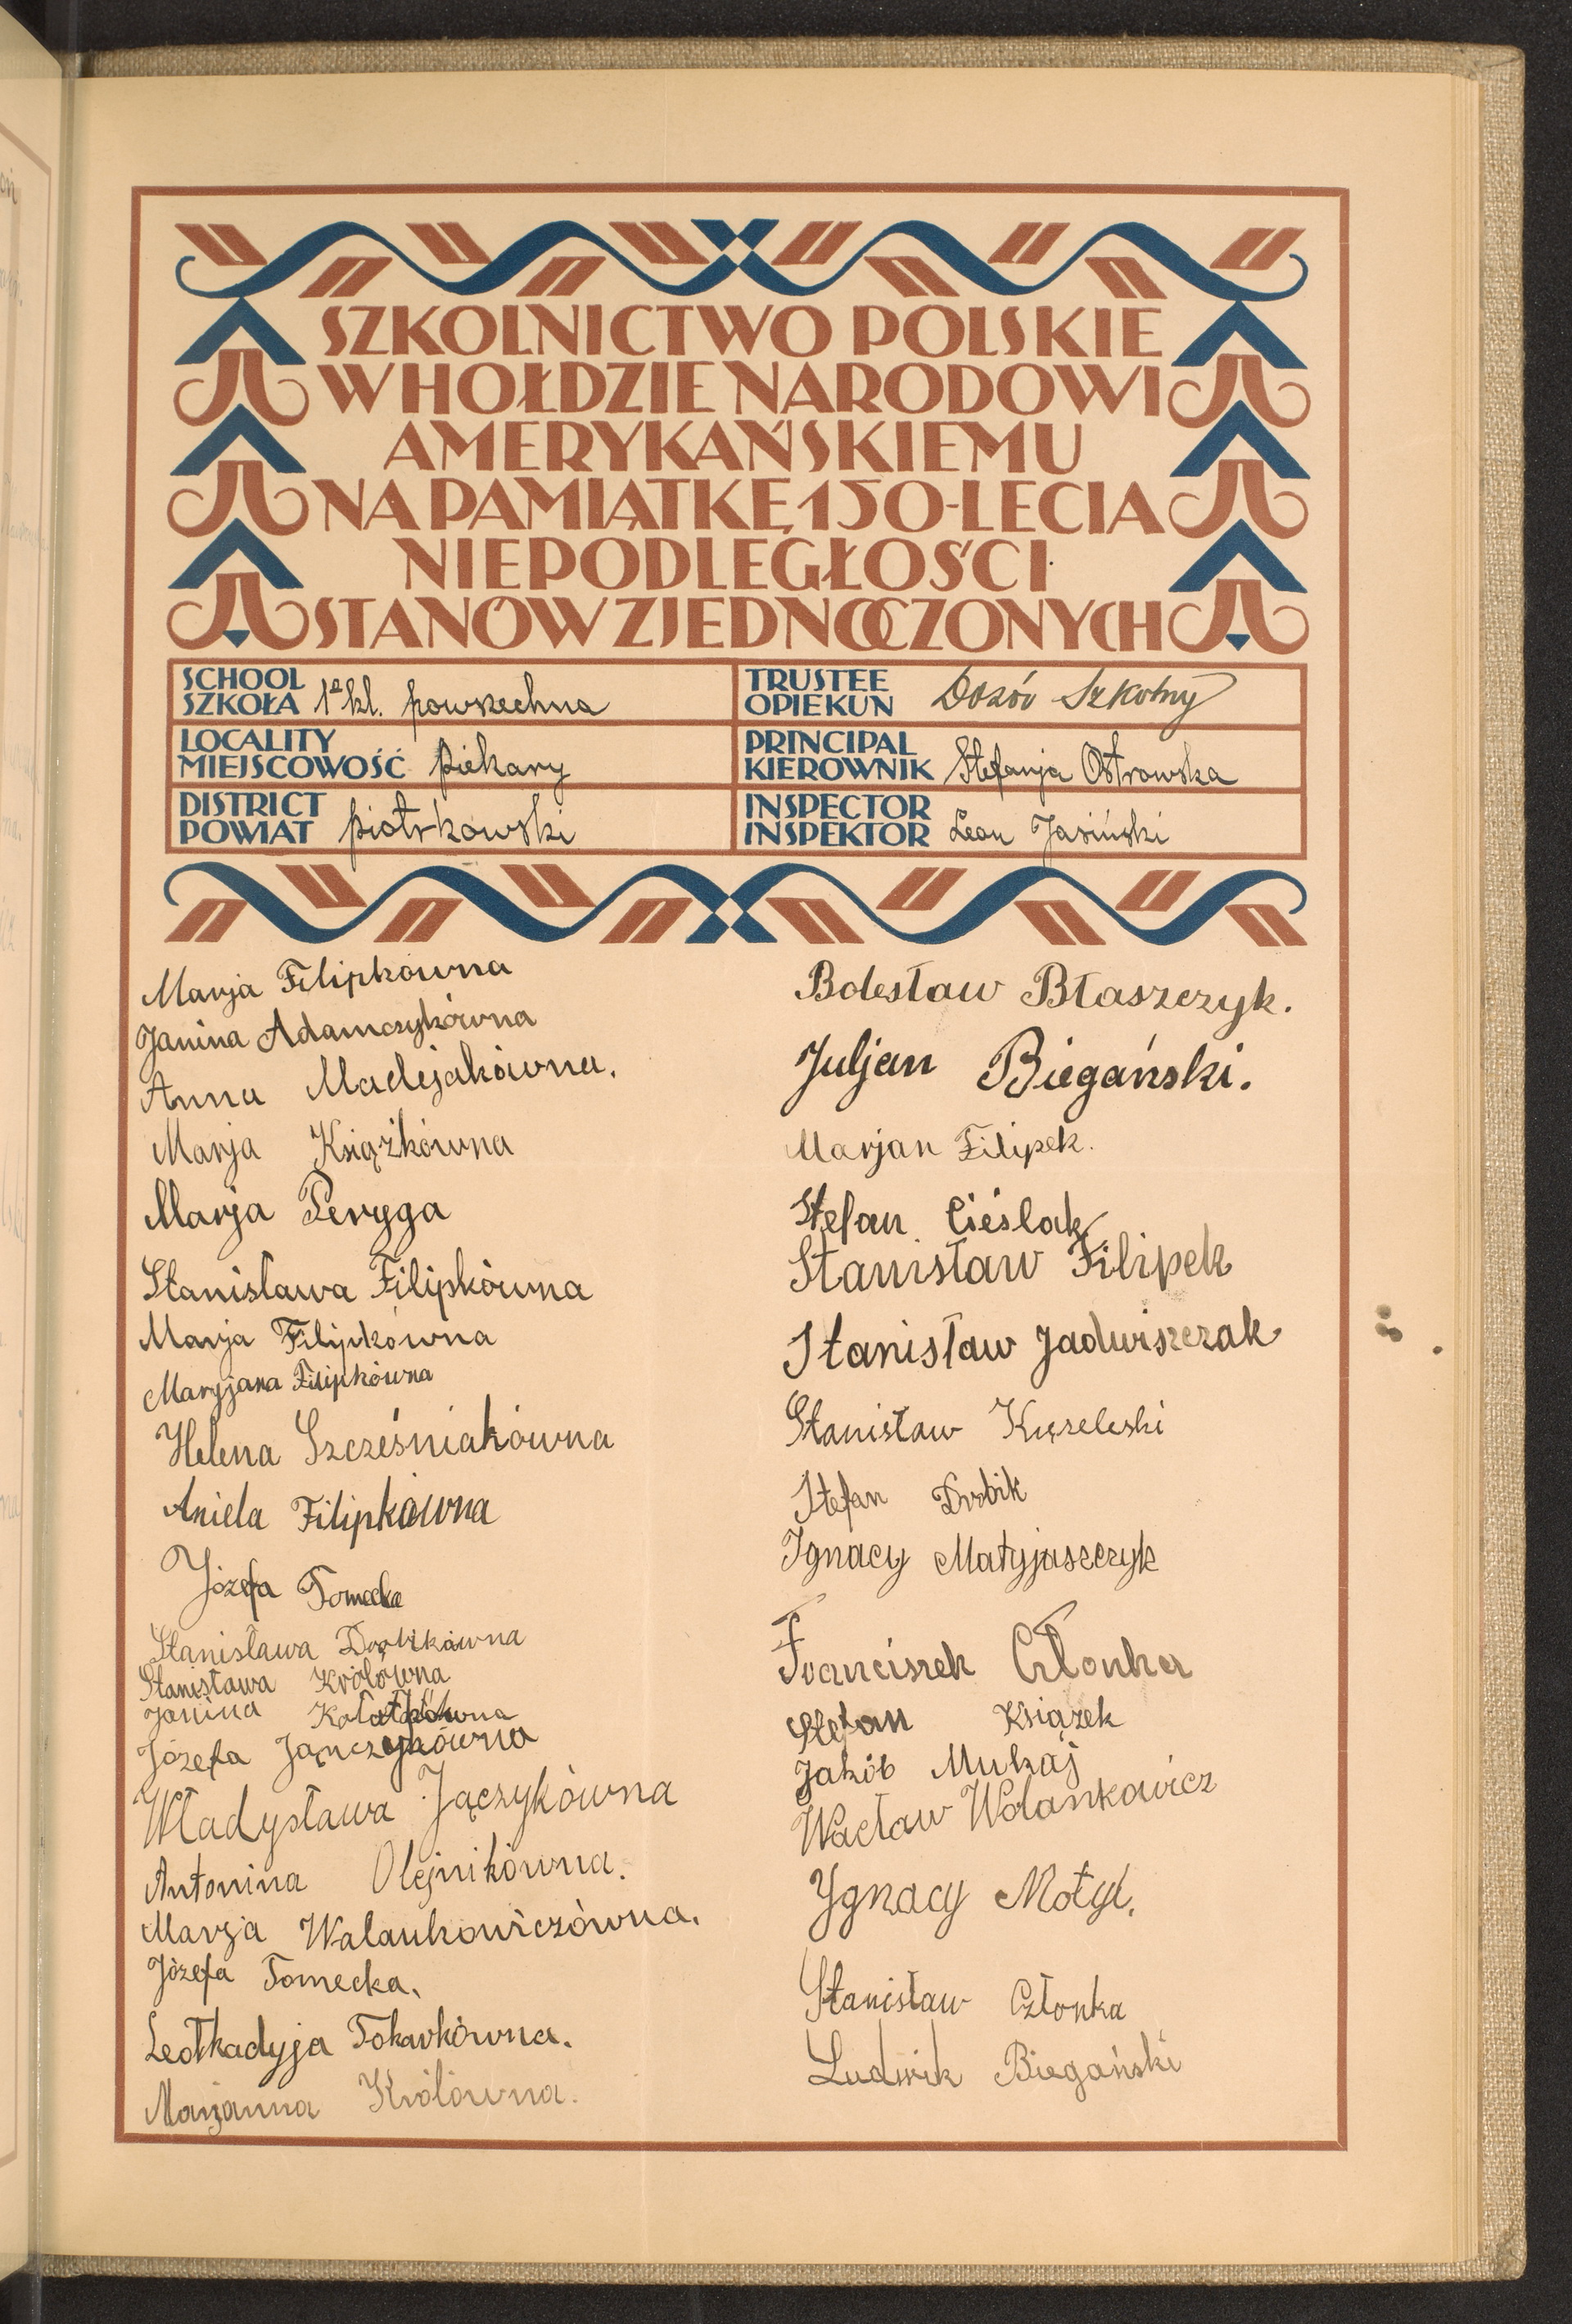 SZKOLNICTWO POLSKIE
W HOŁDZIE NARODOWI
AMERYKAŃSKIEMU
NA PAMIĄTKĘ 150-LECIA
NIEPODLEGŁOŚCI
STANÓW ZJEDNOCZONYCH
SCHOOL
SZKOŁA 1ª kl. powszechna
TRUSTEE
OPIEKUN Dozór Szkolny
LOCALITY
MIEJSCOWOŚĆ Piekary
PRINCIPAL
KIEROWNIK Stefanja Ostrowska
DISTRICT
POWIAT piotrkowski
INSPECTOR
INSPEKTOR Leon Jasiński
Marja Filipkówna
Janina Adamczykówna
Anna Madejakówna.
Marja Książkówna
Marja Peryga
Stanisława Filipkówna
Marja Filipkówna
Maryjana Filipkówna
Helena Szcześniakówna
Aniela Filipkówna
Józefa Tomecka
Stanisława Drobikówna
Stanisława Królówna
Janina
Józefa Janczykówna
Władysława Jączykówna
Antonina Olejnikówna.
Marja Walankowiczówna.
Józefa Tomecka.
Leotkadyja Tokarkówna.
Marjanna Królówna.
Bolesław Błaszczyk.
Juljan Biegański.
Marjan Filipek.
Stefan Cieślak
Stanisław Filipek
Stanisław Jadwiszczak
Stanisław
Stefan Drobik
Ignacy Matyjaszczyk
Franciszek Członka
Stefan Książek
Jakób Mukaj
Wacław Wolankowicz
Ygnacy Motyl.
Stanisław Członka
Ludwik Biegański